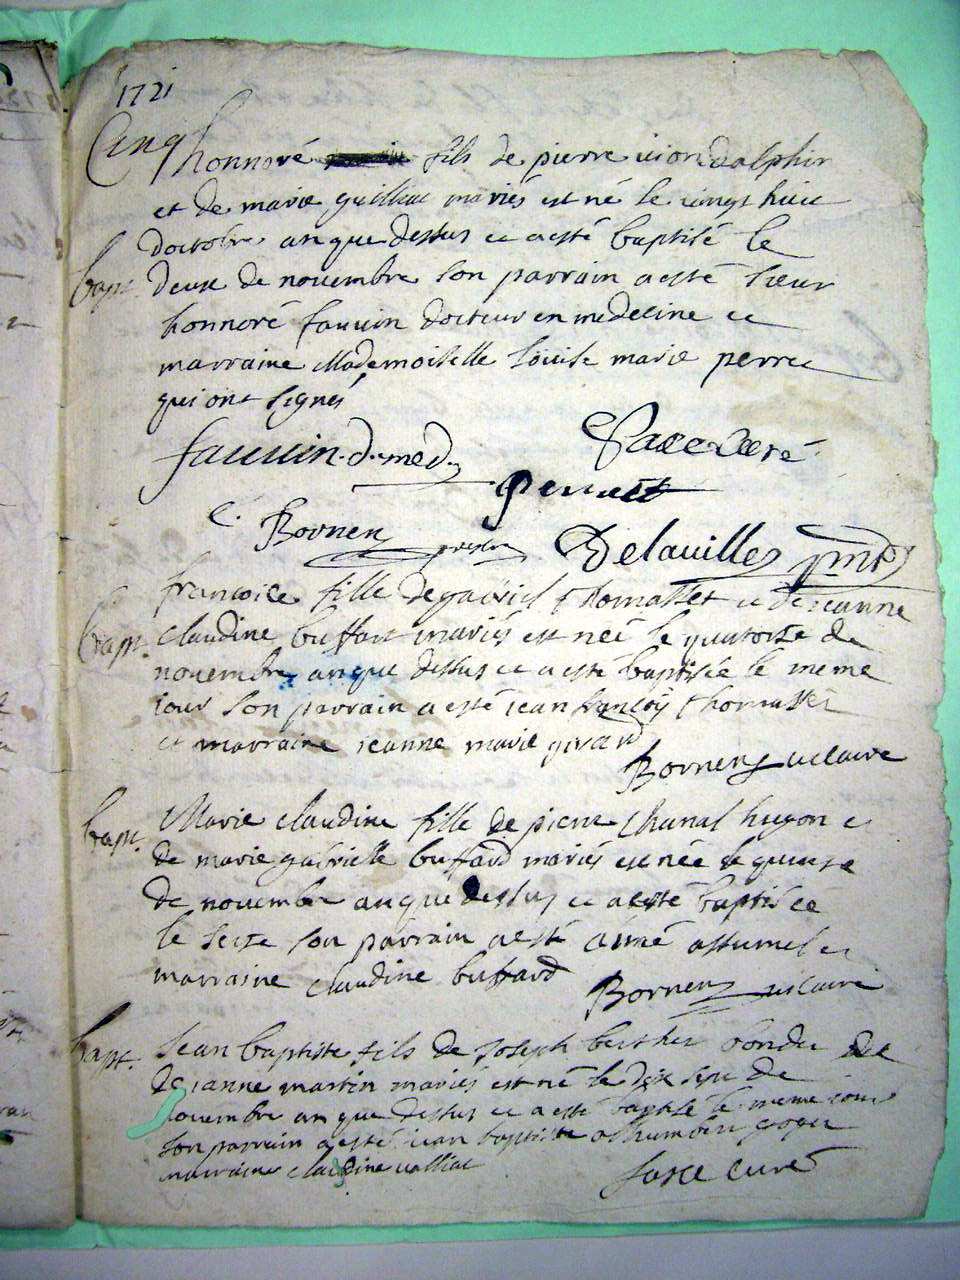 1721
Cinq
honnoré fils de pierre vion dalphin
et de marie guilliac mariés est né le vingt huit
doctobre an que dessus et a esté baptisé le
bapt.
deux de novembre son parrain a esté sieur
honnoré fauvin docteur en medecine et
marraine Mademoiselle louise marie perret
qui ont signés
fauvin. d. med.
curé
Perrett
C. Bornen
Delaville
francoise fille de gabriel thomasset et de jeanne
bapt.
claudine buffart mariés est née le quatorse de
novembre an que dessus et a esté baptisée le meme
jour son parrain a esté jean francois thomasset
et marraine jeanne marie girard
Bornens vicaire
bapt.
Marie claudine fille de pierre hugon et
de marie gabrielle buffard mariés est née le quinse
de novembre an que dessus et a esté baptisée
le seise son parrain a esté aimé et
marraine claudine buffard
Bornens vicaire
bapt.
Jean baptiste fils de Joseph berthet et
de janne martin mariés est né le dix sept de
novembre an que dessus et a esté baptisé le meme jour
son parrain a esté jean baptiste
marraine claudine
curé